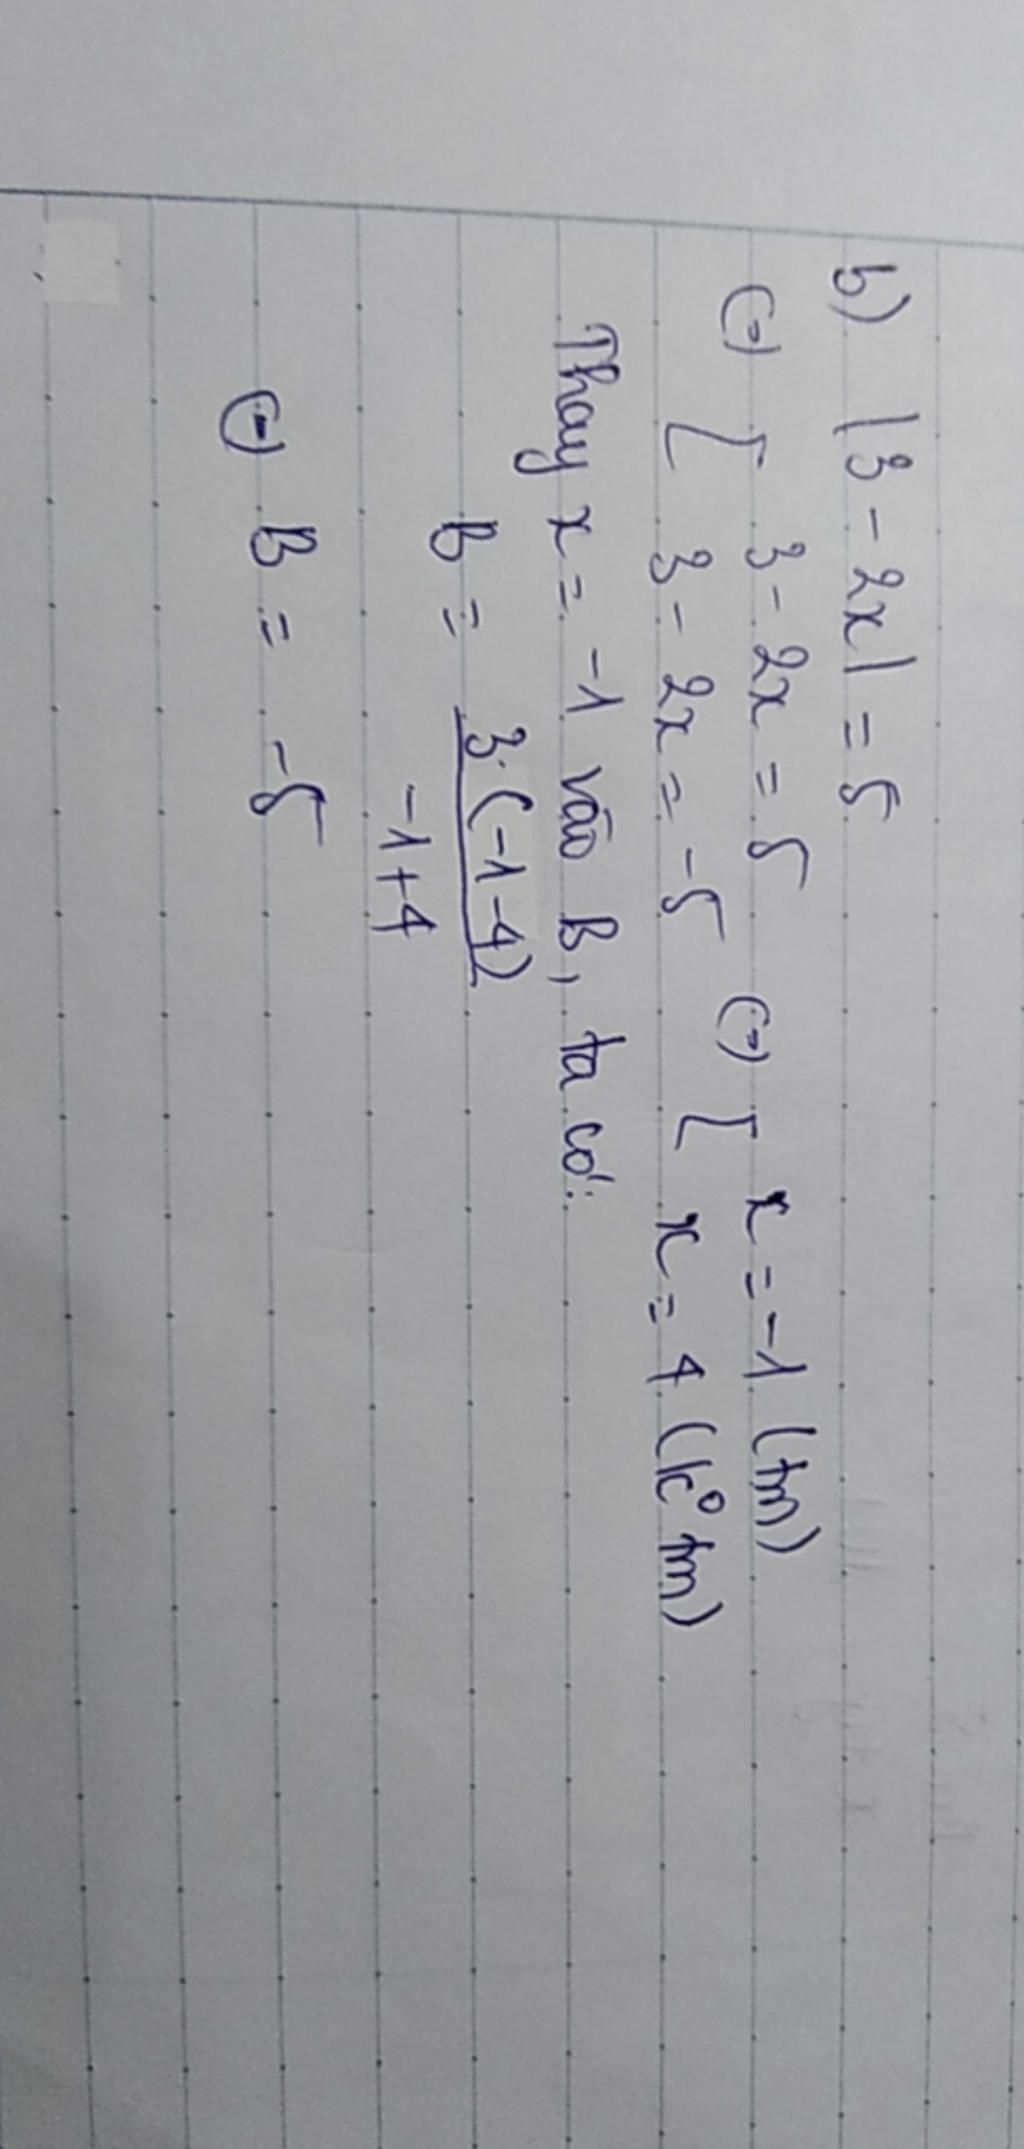 b) |3 - 2x| = 5
(=) [ 3 - 2x = 5 (=) [ x = -1 (tm)
3 - 2x = -5 x = 4 (k° tm)
Thay x = -1 vào B, ta có:
B = 3.(-1-4)
-1+4
(=) B = -5